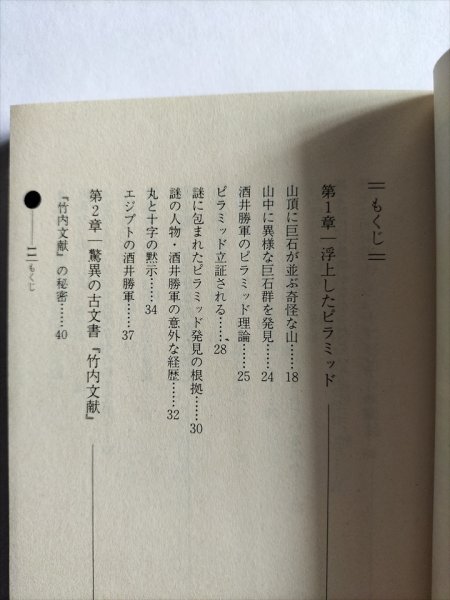 もくじ
第1章―浮上したピラミッド
山頂に巨石が並ぶ奇怪な山……18
山中に異様な巨石群を発見……24
酒井勝軍のピラミッド理論……25
ピラミッド立証される……28
謎に包まれたピラミッド発見の根拠……30
謎の人物・酒井勝軍の意外な経歴……32
丸と十字の黙示……34
エジプトの酒井勝軍……37
第2章―驚異の古文書『竹内文献』
『竹内文献』の秘密……40
もくじ